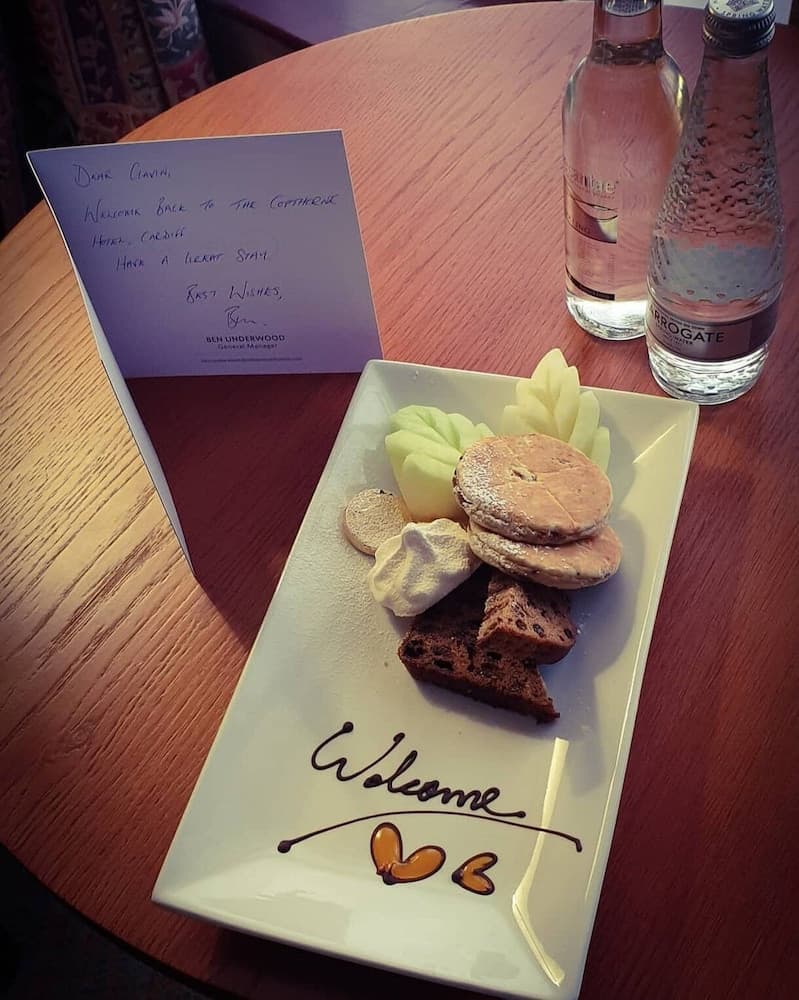 DEAR GAVIN,
WELCOME BACK TO THE COPTHORNE
HOTEL, CARDIFF
HAVE A GREAT STAY.
BEST WISHES,
Ben.
BEN UNDERWOOD
General Manager
SPRING
ARROGATE
WATER
Welcome